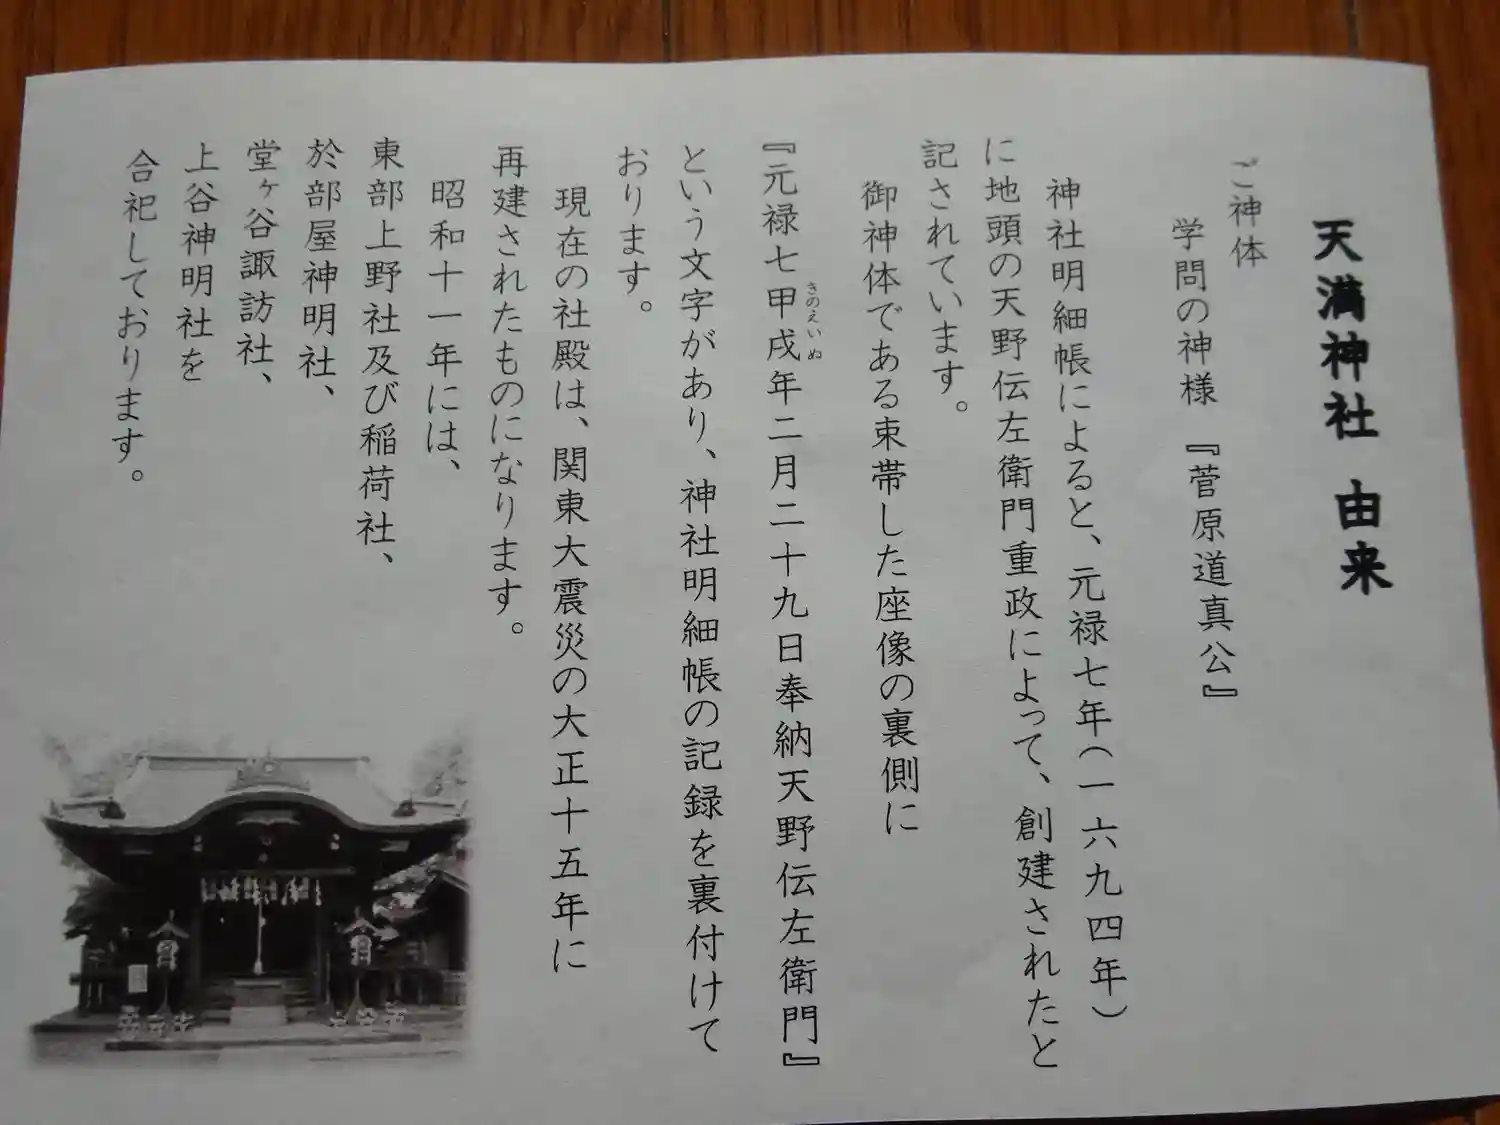 天満神社 由来
ご神体
学問の神様 『菅原道真公』
神社明細帳によると、元禄七年(一六九四年)
に地頭の天野伝左衛門重政によって、創建されたと
記されています。
御神体である束帯した座像の裏側に
『元禄七甲戌年二月二十九日奉納天野伝左衛門』
きのえいぬ
という文字があり、神社明細帳の記録を裏付けて
おります。
現在の社殿は、関東大震災の大正十五年に
再建されたものになります。
昭和十一年には、
東部上野社及び稲荷社、
於部屋神明社、
堂ヶ谷諏訪社、
上谷神明社を
合祀しております。